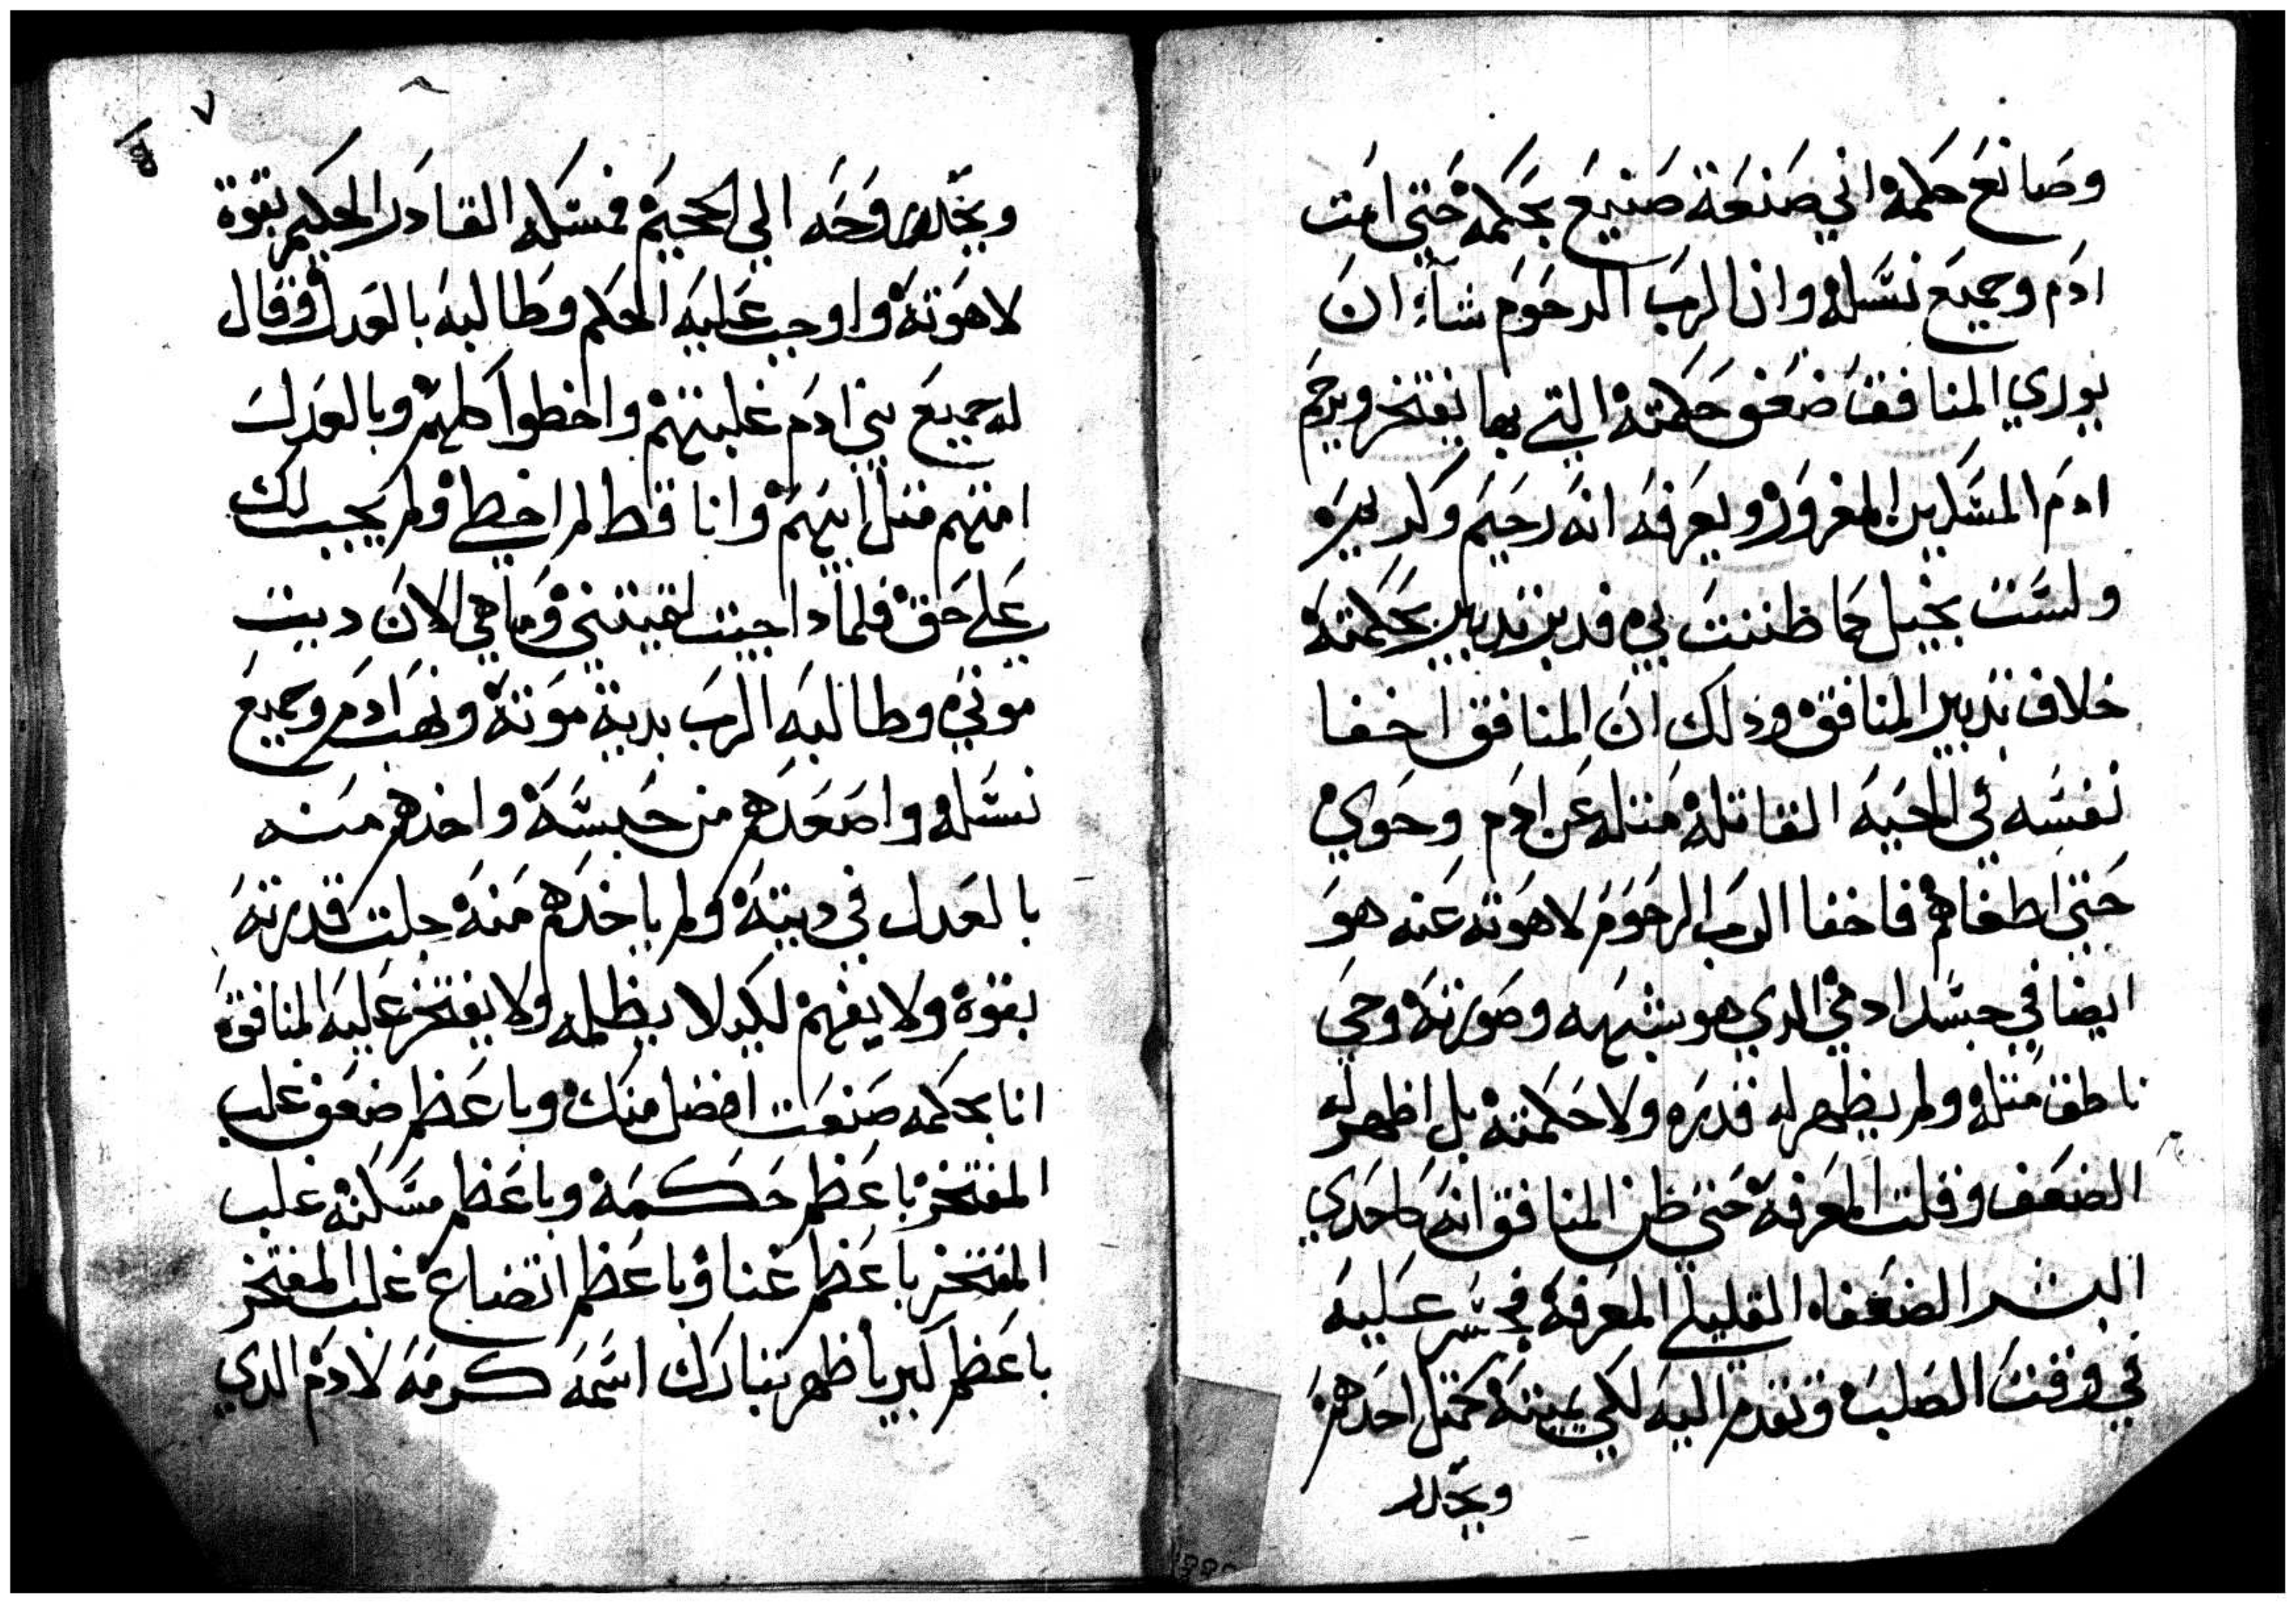 وصانع حكمة اني صنعة صنيع بحكمة حتي امت
ادم وجميع نسله وان الرب الرحوم شاء ان
يوري المنافق ضعف حكمته التي بها يفتخر ويرحم
ادم المسكين المغرور ويعرفه انه رحيم وكريم
ولست بخيل كما ظننت بي فدبر تدبير بحكمته
خلاف تدبير المنافق وذلك ان المنافق اخفا
نفسه في الحيه القاتله مثله عن ادم وحوي
حتي اطغاهم فاخفا الرب الرحوم لاهوته عنه هو
ايضا في جسد ادمي الدي هو شبهه وصورته وحي
ناطق مثله ولم يظهر له قدره ولا حكمته بل اظهر له
الضعف وقلت المعرفة حتي ظن المنافق انه كاحدي
البشر الضعفاء القليلي المعرفة فجسر عليه
في وقت الصلب وتقدم اليه لكي يميته كمثل احدهم
ويحدر
٧
ويحدر روحه الي الجحيم فمسكه القادر الحكيم بقوة
لاهوته واوجب عليه الحكم وطالبه بالعدل وقال
له جميع بني ادم غلبتهم واخطوا كلهم وبالعدل
امتهم مثل ابيهم وانا قط لم اخطي ولم يجب لك
علي حق فلمادا جيت لقيتني وما هي الان ديت
موتي وطالبه الرب بدية موته ونهب ادم وجميع
نسله واصعدهم من حبسه واخدهم منه
بالعدل في ديته ولم ياخدهم منه جلت قدرته
بقوة ولا يفهم لكيلا يظلمه ولا يفتخر عليه المنافق
انا بحكمه صنعت افضل منك وباعظم ضعف غلب
المفتخر باعظم حكمة وباعظم مسكنه غلب
المفتخر باعظم غنا وباعظم اتضاع غلب المفتخر
باعظم كبريا ظهر تبارك اسمه كرمه لادم الدي